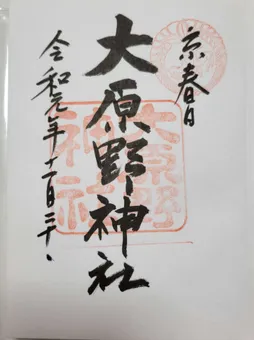 京春日
大原野神社
令和元年十一月二十
大原野
神社